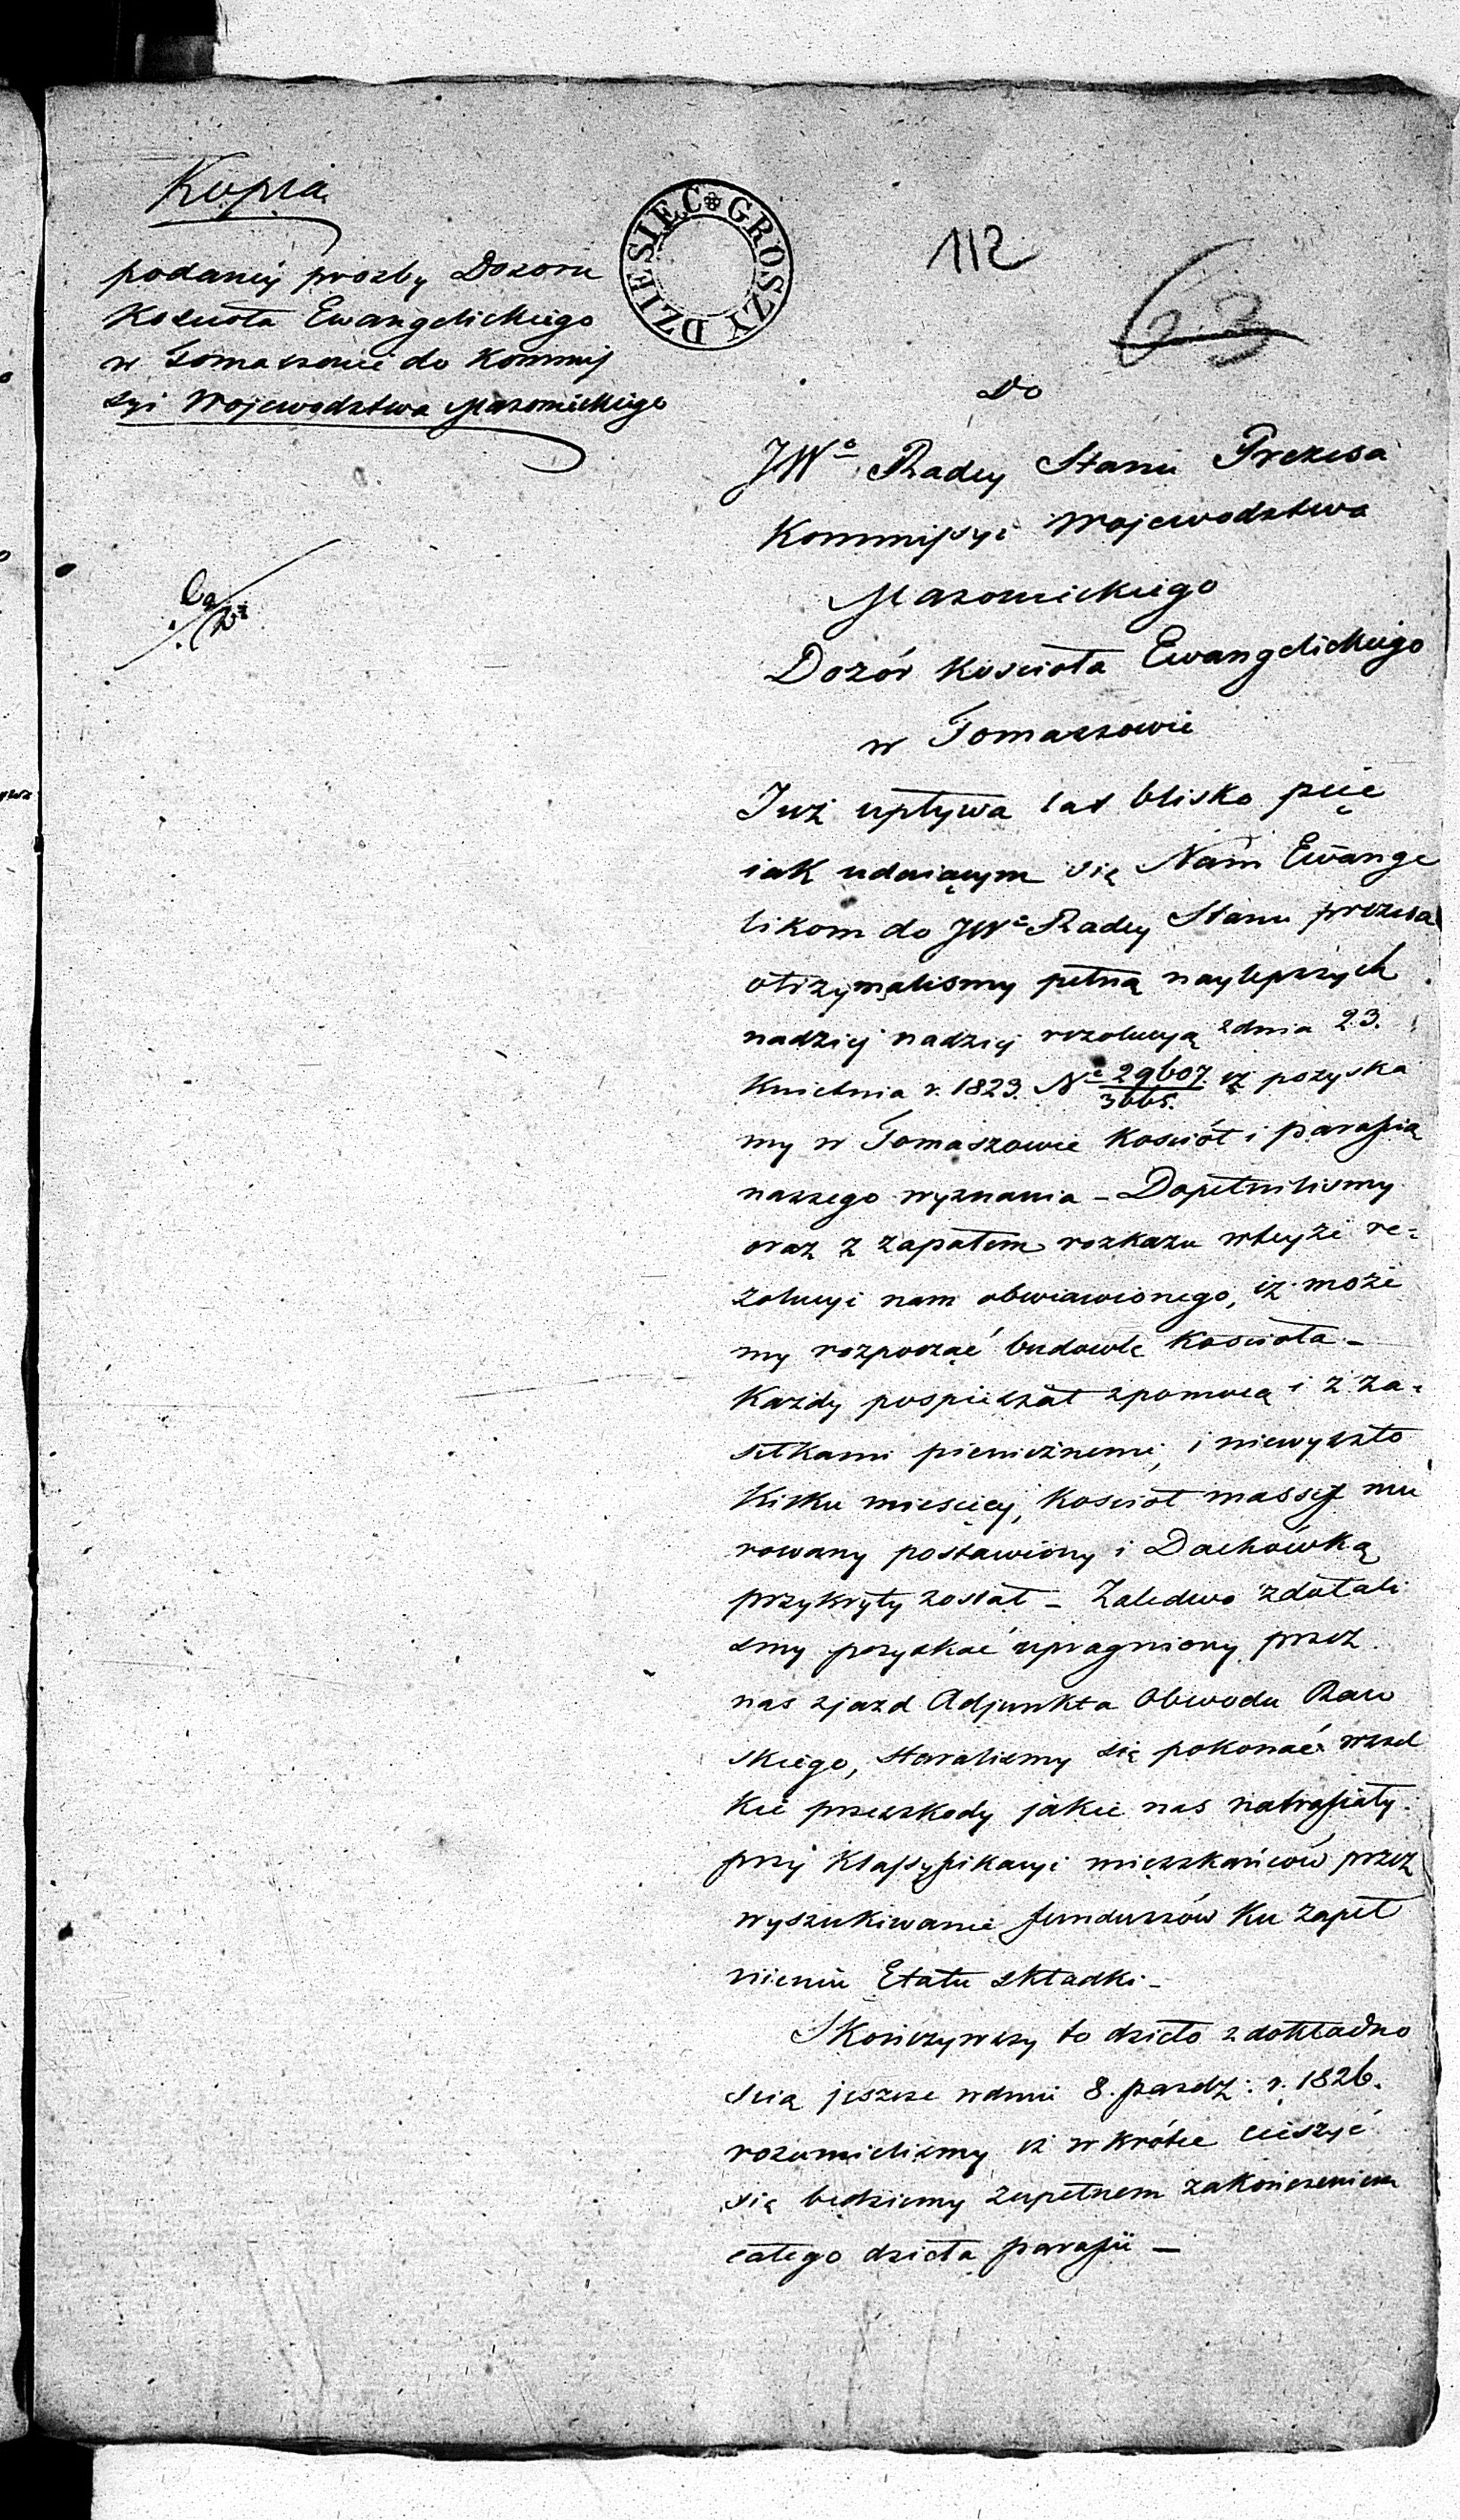 Kopia
podaney prozby Dozoru
Kościoła Ewangelickiego
w Tomaszowie do Kommis
syi Wojewodztwa Mazowieckiego
DZIESIĘC GROSZY
112
63
Do
JWo Radcy Stanu Prezesa
Kommissyi Wojewodztwa
Mazowieckiego
Dozór Kościoła Ewangelickiego
w Tomaszowie
Już upływa lat blisko pięć
iak udaiącym się Nam Ewange
likom do JWo Radcy Stanu prezesa
otrzymalismy pełną naylepszych
nadziej nadziej rezolucyą z dnia 23.
Kwietnia r. 1823. No 29607/3665. iż pozyska
my w Tomaszowie Kosciół i parafią
naszego wyznania - Dopełnilismy
oraz z zapałem rozkazu wteyże re=
zolucyi nam obwiawionego, iż może
my rozpocząć budowlę Kościoła -
Każdy pospieszał z pomocą i z za=
siłkami pieniężnemi, i niewyszło
Kilku miesięcy, Kosciół massif mu
rowany postawiony i Dachówką
przykryty został - Zaledwo zdołali
smy pozyskać upragniony przez
nas zjazd Adjunkta Obwodu Raw
skiego, staralismy się pokonać wszel
kie przeszkody jakie nas natrafiały
przy Klassyfikacyi mieszkańców przez
wyszukiwanie funduszów Ku zapeł
nieniu Etatu składki -
Skończywszy to dzieło z dokładno
scią jeszcze w dniu 8. pazdz: r. 1826.
rozumielismy iż w krótce cieszyć
się będziemy zupełnem zakończeniem
całego dzieła parafii -